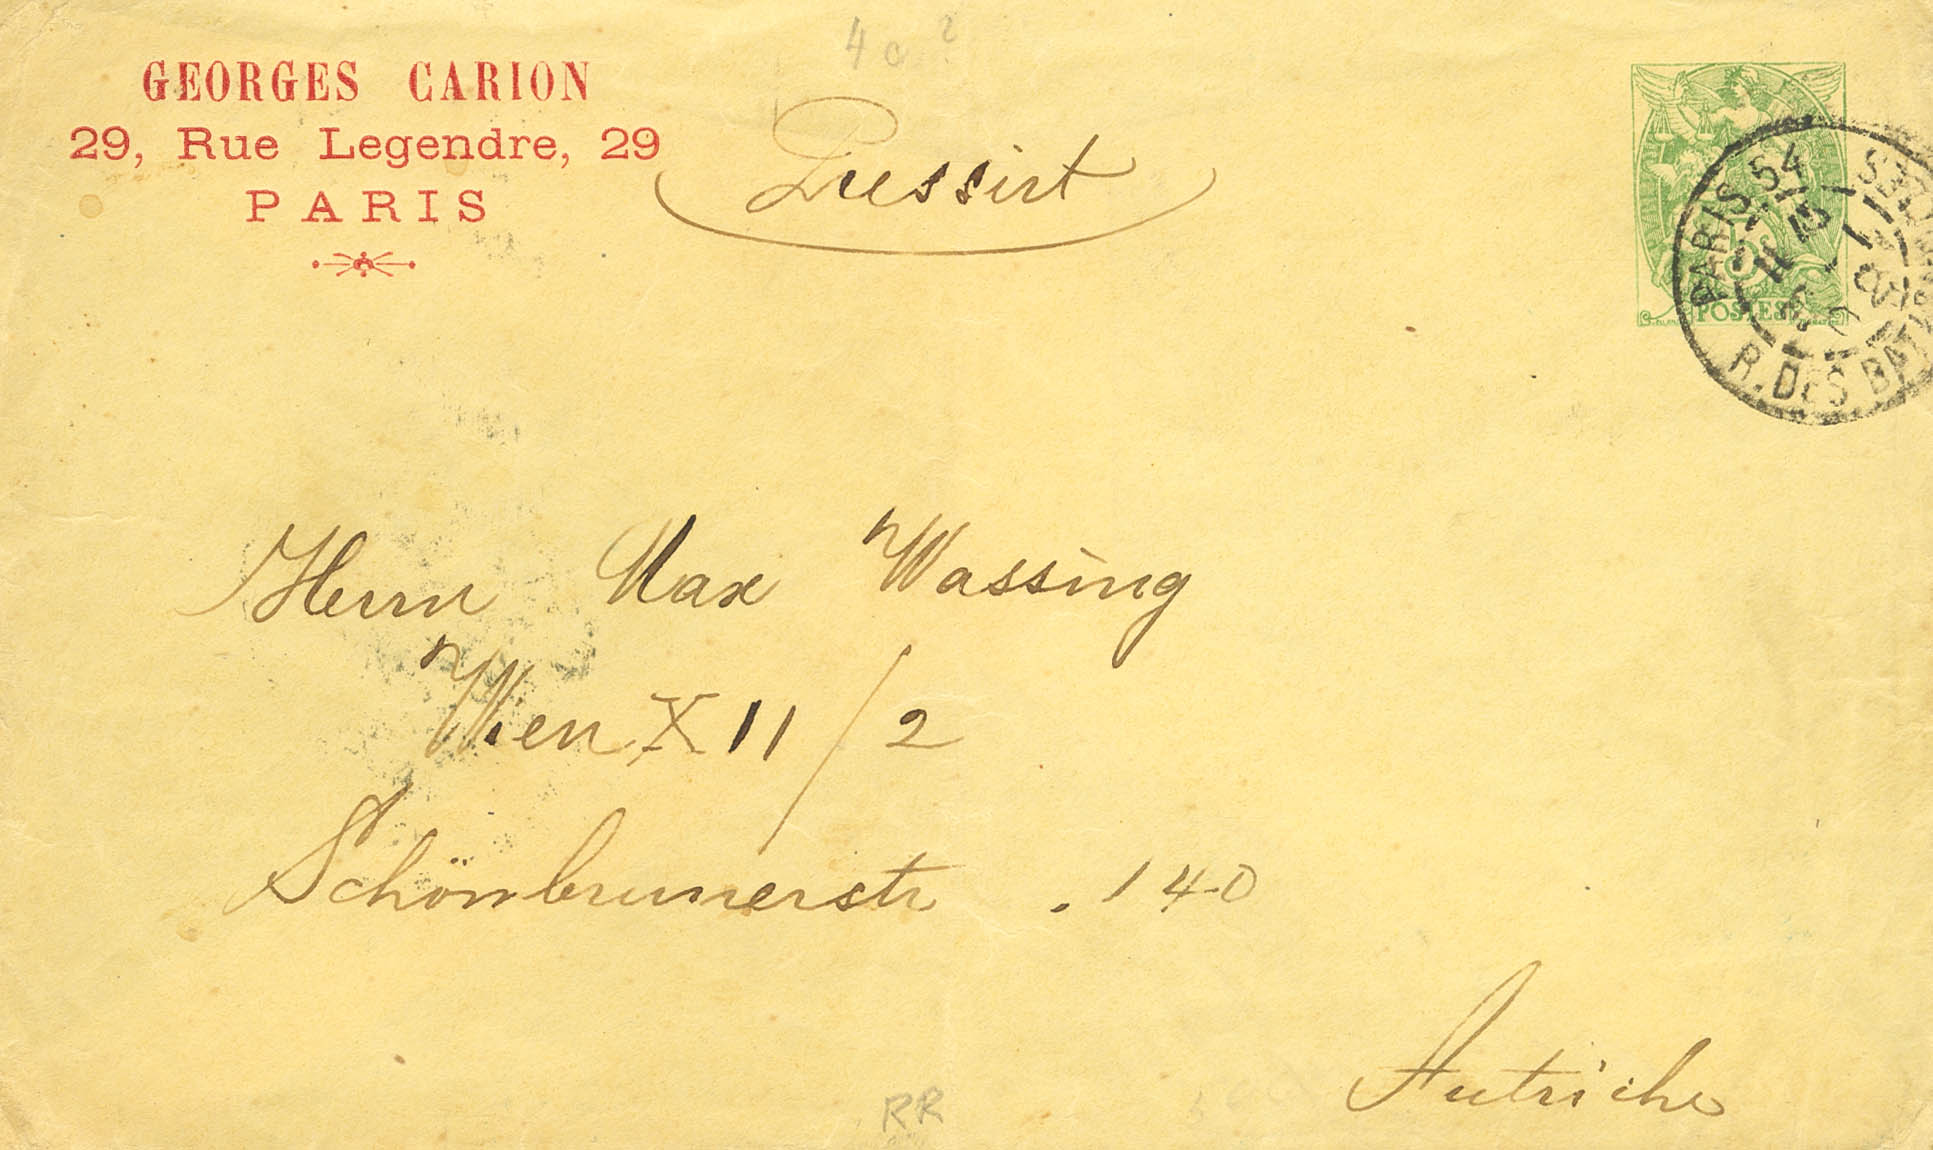 4 a ?
GEORGES CARION
29, Rue Legendre, 29
PARIS
Pressirt
5
POSTES
PARIS 54
R. DES BAT
11 15
Herrn Max Wassing
Wien XII/2
Schönbrunerstr. 140
Autriche
RR